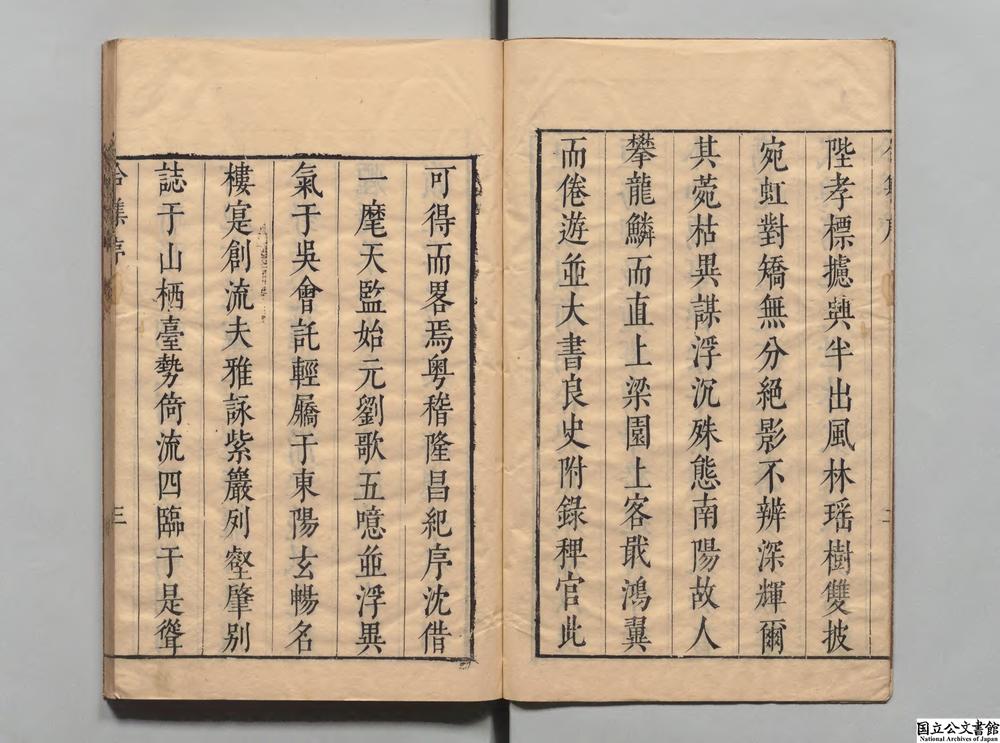 陛孝標攄輿半出風林瑶樹雙披
宛虹對矯無分絕影不辨深輝爾
其菀枯異謀浮沉殊態南陽故人
攀龍鱗而直上梁園上客戢鴻翼
而倦遊並大書良史附錄稗官此
可得而畧焉粤稽隆昌紀序沈借
一麾天監始元劉歌五噫並浮異
氣于吳會託輕屩于東陽玄暢名
樓寔創流夫雅詠紫巖列壑肇别
誌于山栖臺勢倚流四臨于是聳
合集序
三
国立公文書館
National Archives of Japan